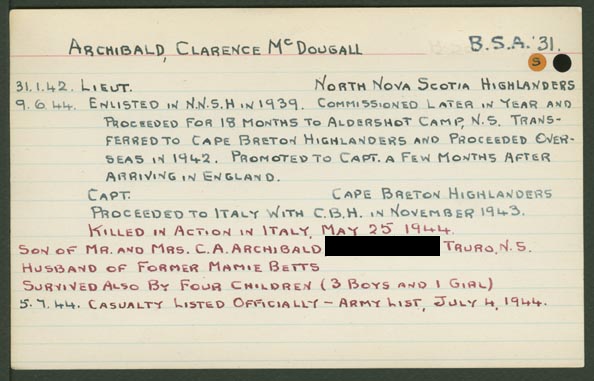 ARCHIBALD, CLARENCE McDOUGALL B.S.A. '31.
S
31.1.42. LIEUT. NORTH NOVA SCOTIA HIGHLANDERS
9.6.44. ENLISTED IN N.N.S.H IN 1939. COMMISSIONED LATER IN YEAR AND
PROCEEDED FOR 18 MONTHS TO ALDERSHOT CAMP, N.S. TRANS-
FERRED TO CAPE BRETON HIGHLANDERS AND PROCEEDED OVER-
SEAS IN 1942. PROMOTED TO CAPT. A FEW MONTHS AFTER
ARRIVING IN ENGLAND.
CAPT. CAPE BRETON HIGHLANDERS
PROCEEDED TO ITALY WITH C.B.H. IN NOVEMBER 1943.
KILLED IN ACTION IN ITALY, MAY 25 1944.
SON OF MR. AND MRS. C.A. ARCHIBALD TRURO, N.S.
HUSBAND OF FORMER MAMIE BETTS
SURVIVED ALSO BY FOUR CHILDREN (3 BOYS AND 1 GIRL)
5.7.44. CASUALTY LISTED OFFICIALLY – ARMY LIST, JULY 4, 1944.